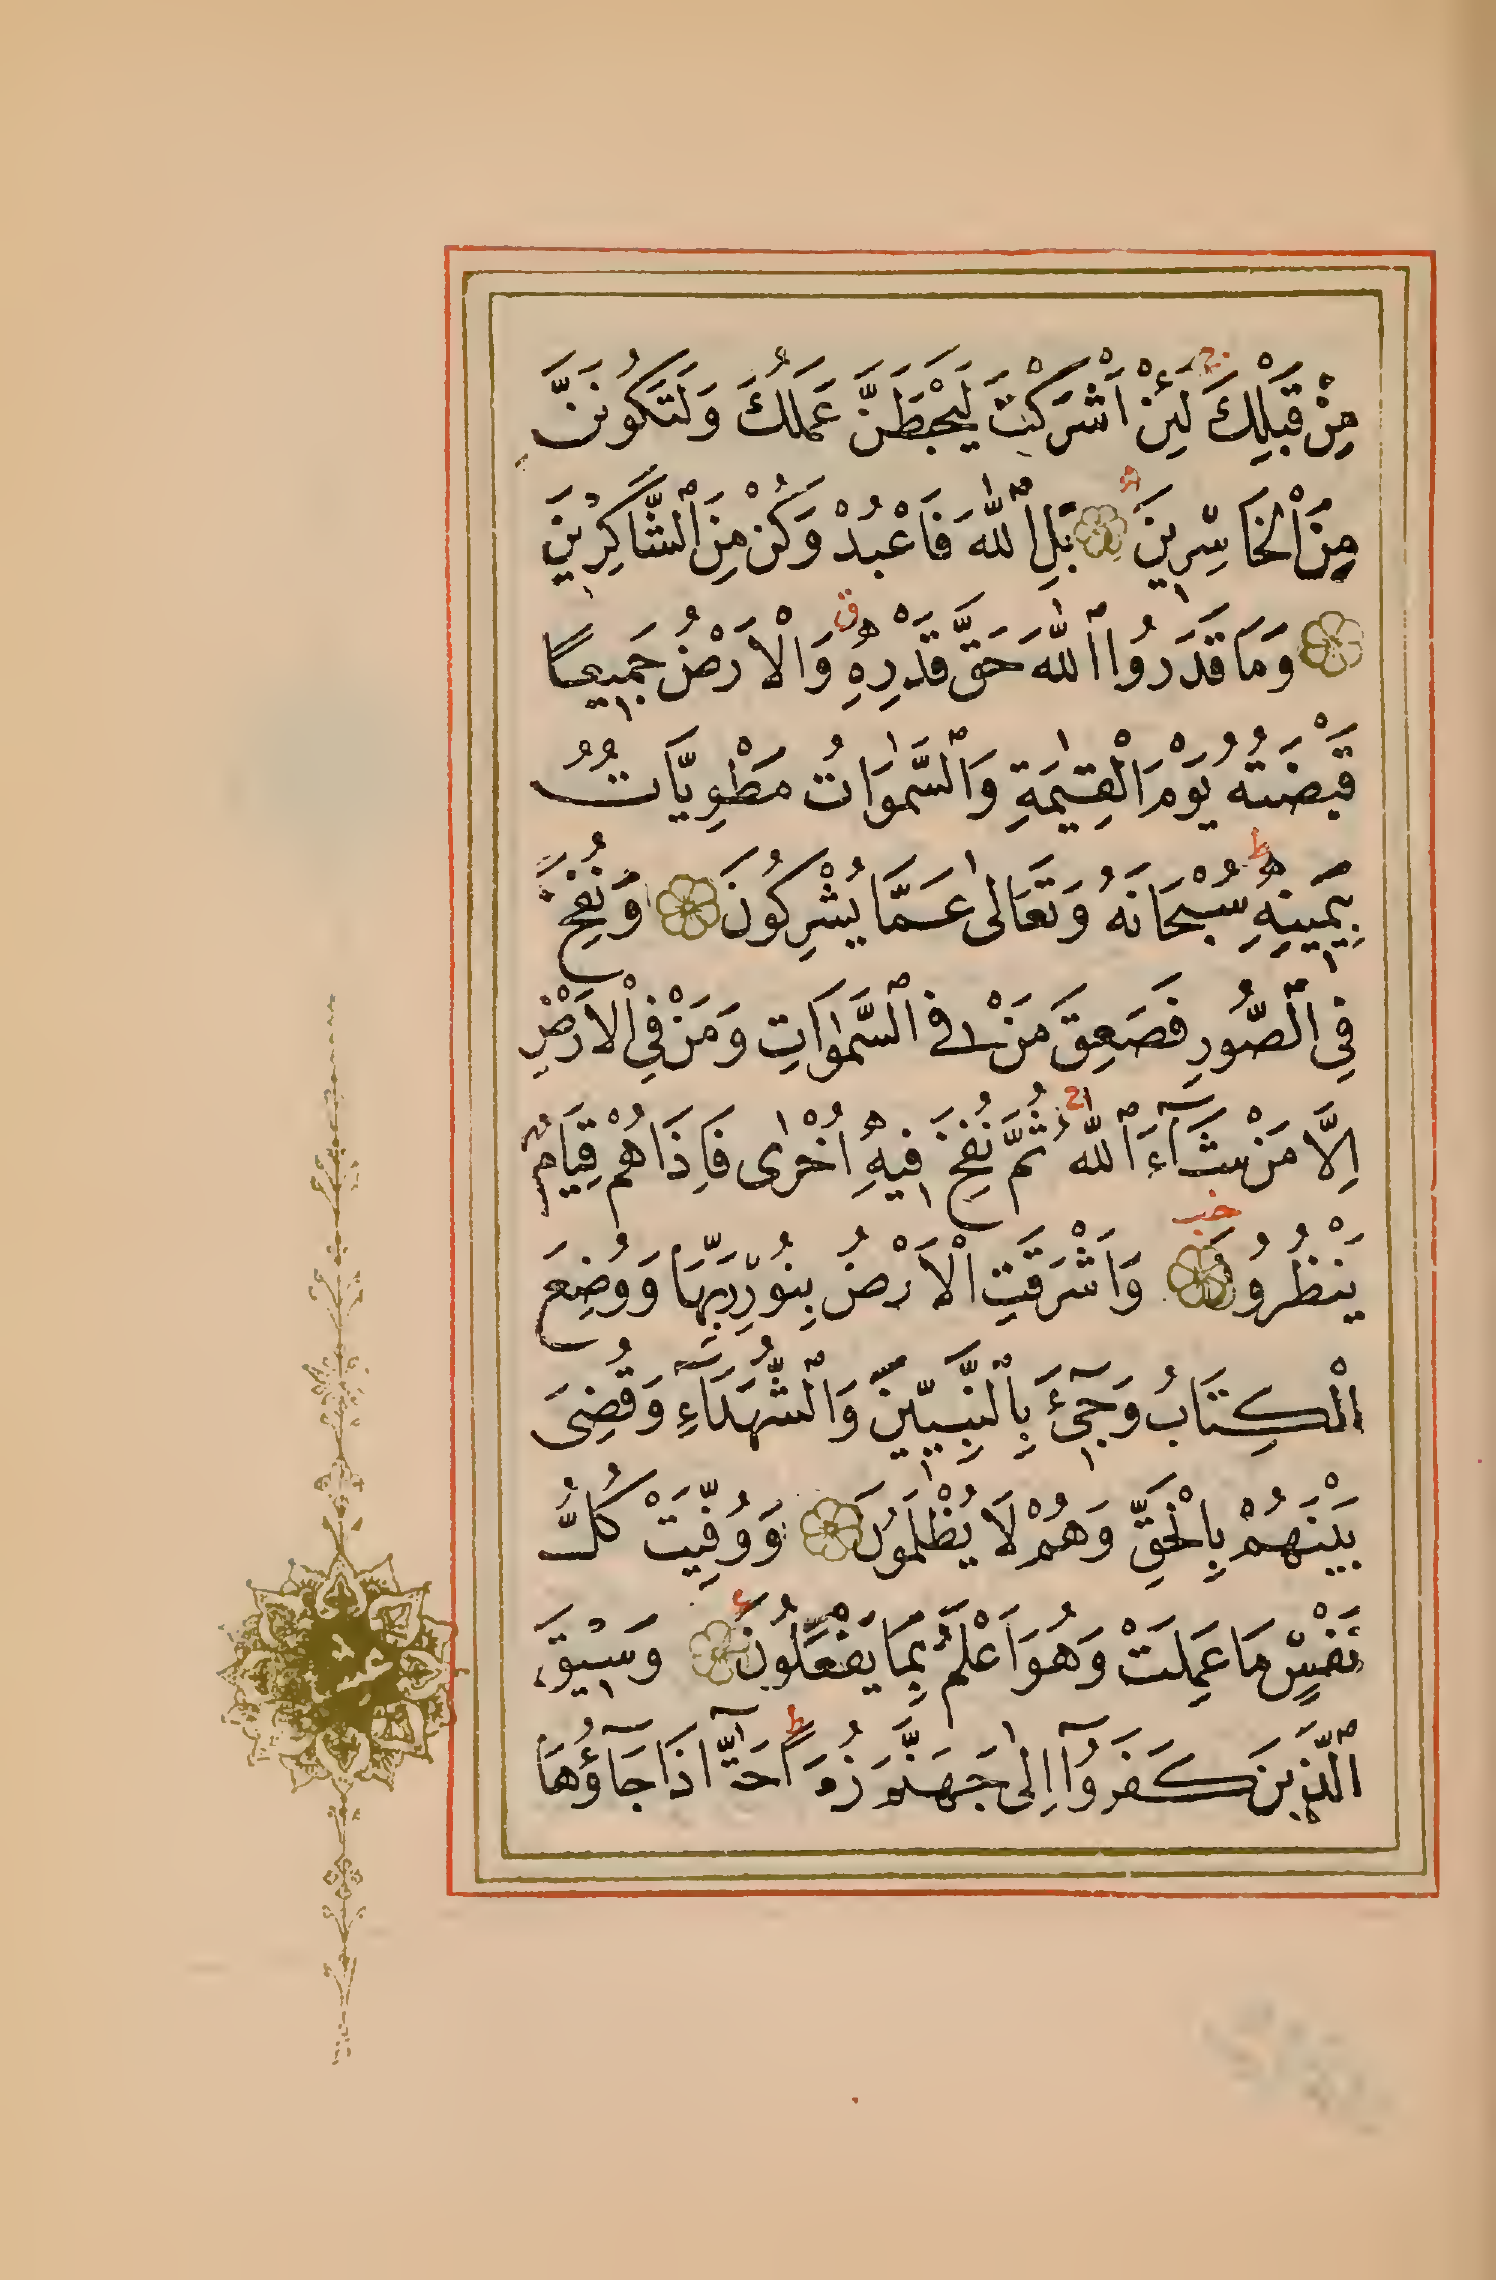 مِنْ قَبْلِكَ لَئِنْ اَشْرَكْتَ لَيَحْبَطَنَّ عَمَلُكَ وَلَتَكُونَنَّ
مِنَ الْخَاسِرِينَ بَلِ اللّٰهَ فَاعْبُدْ وَكُنْ مِنَ الشَّاكِرِينَ
وَمَا قَدَرُوا اللّٰهَ حَقَّ قَدْرِهِ وَالْاَرْضُ جَمِيعًا
قَبْضَتُهُ يَوْمَ الْقِيٰمَةِ وَالسَّمٰوَاتُ مَطْوِيَّاتٌ
بِيَمِينِهِ سُبْحَانَهُ وَتَعَالٰى عَمَّا يُشْرِكُونَ وَنُفِخَ
فِي الصُّورِ فَصَعِقَ مَنْ فِي السَّمٰوَاتِ وَمَنْ فِي الْاَرْضِ
اِلَّا مَنْ شَآءَ اللّٰهُ ثُمَّ نُفِخَ فِيهِ اُخْرٰى فَاِذَا هُمْ قِيَامٌ
يَنْظُرُونَ وَاَشْرَقَتِ الْاَرْضُ بِنُورِ رَبِّهَا وَوُضِعَ
الْكِتَابُ وَجِيٓءَ بِالنَّبِيّينَ وَالشُّهَدَآءِ وَقُضِىَ
بَيْنَهُمْ بِالْحَقِّ وَهُمْ لَا يُظْلَمُونَ وَوُفِّيَتْ كُلُّ
نَفْسٍ مَا عَمِلَتْ وَهُوَ اَعْلَمُ بِمَا يَفْعَلُونَ وَسِيقَ
الَّذِينَ كَفَرُوٓا اِلٰى جَهَنَّمَ زُمَرًا حَتّٰٓى اِذَا جَآؤُهَا